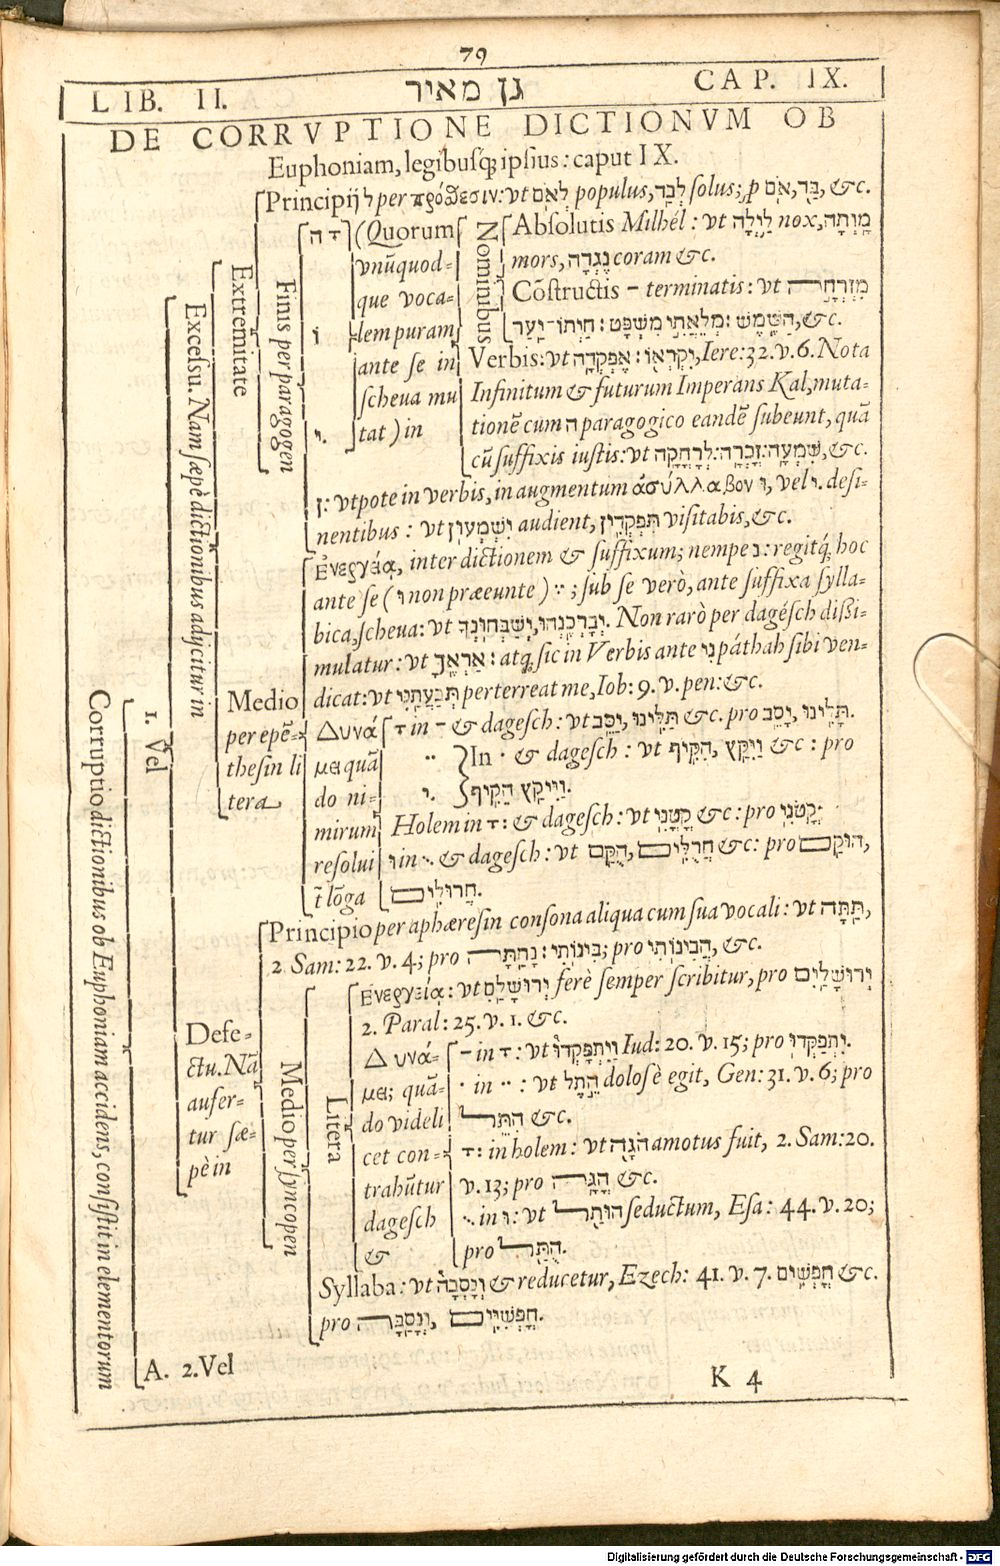 79
LIB. II. גן מאיר CAP. IX.
DE CORRVPTIONE DICTIONVM OB
Euphoniam, legibusq́; ipsius: caput IX.
Corruptio dictionibus ob Euphoniam accidens, consistit in elementorum
1. Vel
Excessu. Nam sæpè dictionibus adijcitur in
Extremitate
Principij ל per πρόθεσιν: vt לאם populus, לבד solus; p בד, אם, &c.
Finis per paragogen
ה
ו
י.
(Quorum
vnũquod-
que voca-
lem puram
ante se in
scheua mu
tat) in
Nominibus
Absolutis Milhél: vt לילה nox, מותה
mors, נגדה coram &c.
Cõstructis – terminatis: vt מזרחה
השמש: מלאתי משפט: חיתו־יער, &c.
Verbis: vt יקראו: אפקדה, Iere: 32. v. 6. Nota
Infinitum & futurum Imperans Kal, muta-
tionẽ cum ה paragogico eandẽ subeunt, quã
cũ suffixis iustis: vt שמעה: זכרה: לרחקה, &c.
ן: vtpote in verbis, in augmentum ἀσύλλαβον ו, vel י. desi-
nentibus: vt ישמעון audient, תפקדין visitabis, &c.
Medio
per epẽ-
thesin li
tera
Ἐνεργείᾳ, inter dictionem & suffixum; nempe נ: regitq́; hoc
ante se (ו non præeunte) ; sub se verò, ante suffixa sylla-
bica, scheua: vt יברכנהו, ישבחונך. Non rarò per dagésch dissi-
mulatur: vt אראך: atq; sic in Verbis ante ני páthah sibi ven-
dicat: vt תבעתני perterreat me, Iob: 9. v. pen: &c.
Δυνά
μει quã
do ni-
mirum
resolui
t̃ lõga
in – & dagesch: vt יסב, תלינו &c. pro יסב, תלינו.
In · & dagesch: vt ויקץ, הקיף &c: pro
י.
וייקץ הקיף.
Holem in : & dagesch: vt קטני &c: pro קטני;
ו in & dagesch: vt הקם, חרלים &c: pro הוקם,
חרולים.
Defe-
ctu. Nã
aufer-
tur sæ-
pè in
Principio per aphæresin consona aliqua cum sua vocali: vt תתה,
2 Sam: 22. v. 4; pro נתתה: בינותי; pro הבינותי, &c.
Medio per syncopen
Litera
Ενεργείᾳ: vt ירושלם ferè semper scribitur, pro ירושלים
2. Paral: 25. v. 1. &c.
Δυνά-
μει; quã-
do videli
cet con-
trahũtur
dagesch
&
– in : vt ויתפקדו Iud: 20. v. 15; pro יתפקדו.
· in ·· : vt התל dolosè egit, Gen: 31. v. 6; pro
התל &c.
: in holem: vt הגה amotus fuit, 2. Sam: 20.
v. 13; pro הגה &c.
in ו: vt הותל seductum, Esa: 44. v. 20;
pro התל.
Syllaba: vt ונסבה & reducetur, Ezech: 41. v. 7. חפשים &c.
pro ונסבה, חפשיים.
A. 2. Vel
K 4
Digitalisierung gefördert durch die Deutsche Forschungsgemeinschaft - DFG